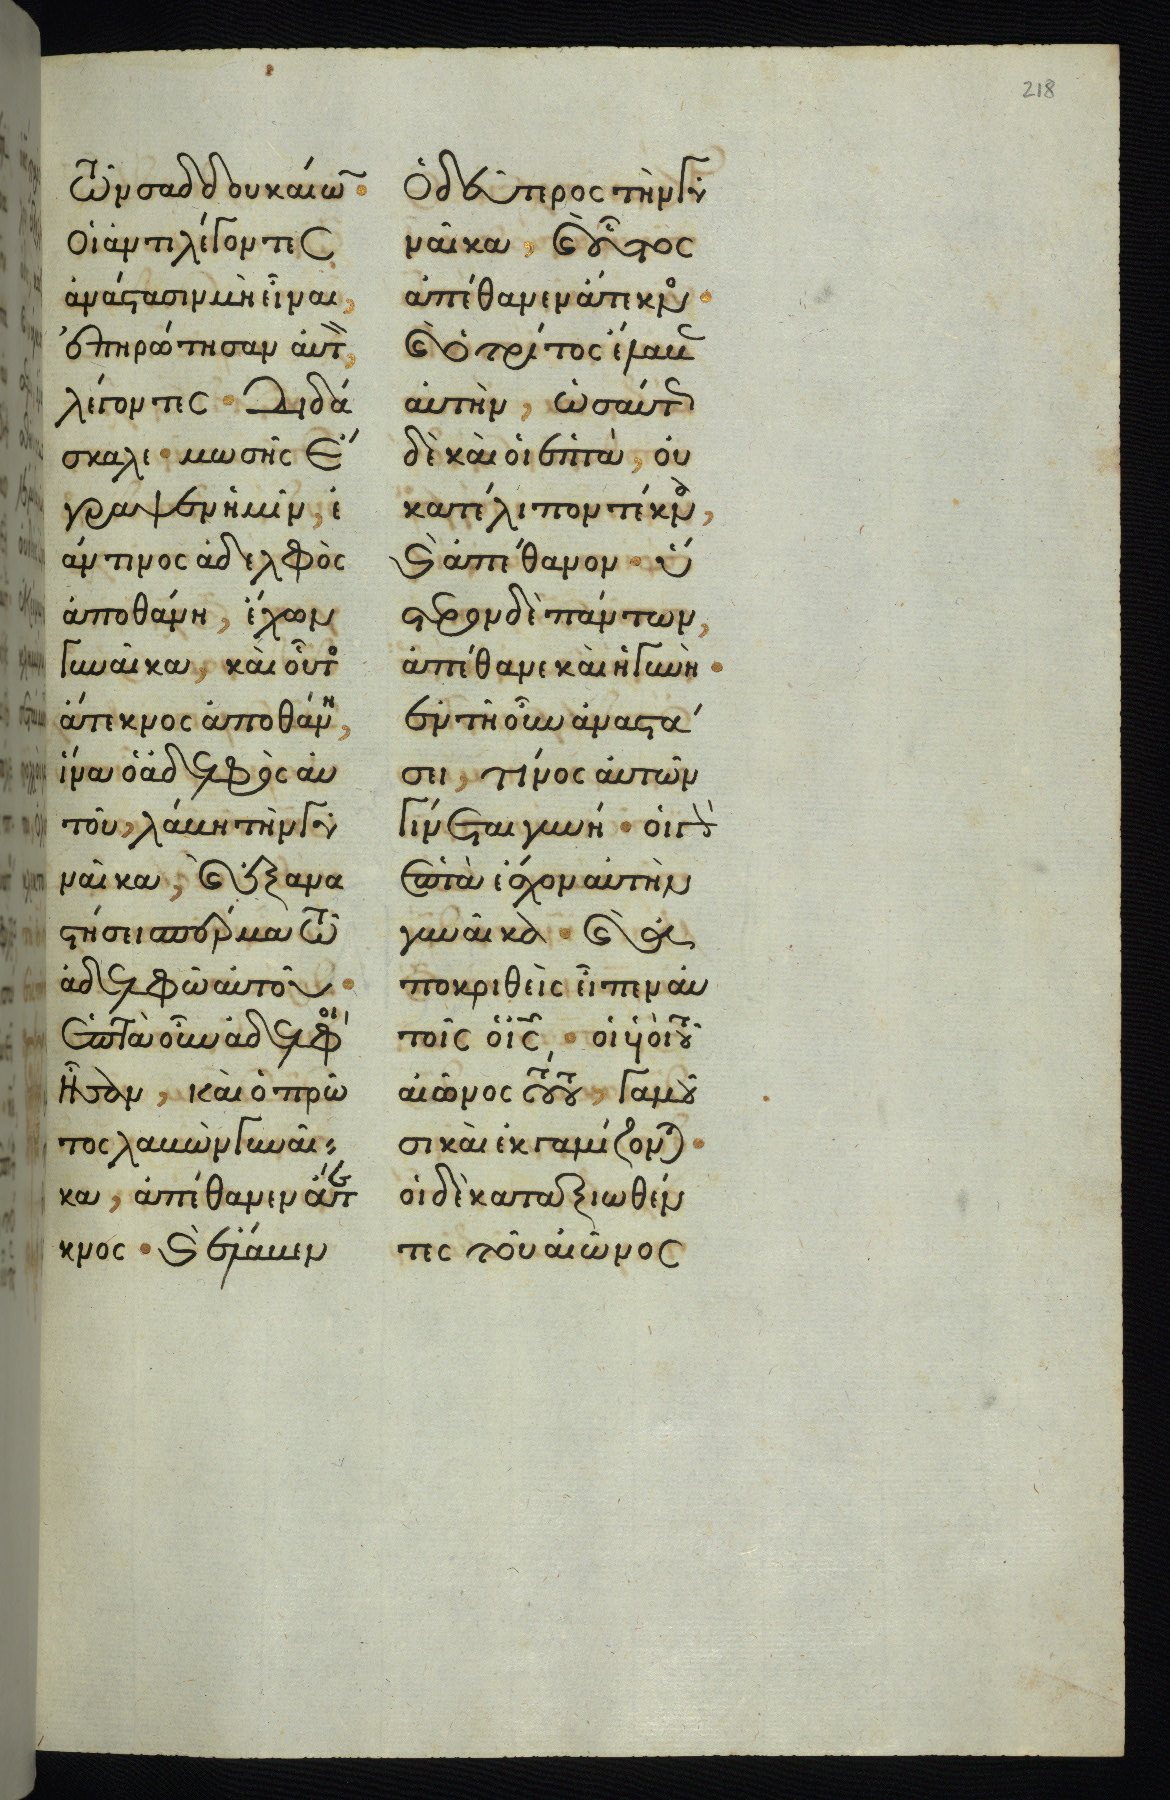 218
τῶν σαδδουκαίων ·
Οἱ ἀντιλέγοντες
ἀνάστασιν μὴ εἶναι,
ἐπηρώτησαν αὐτὸν,
λέγοντες · Διδά
σκαλε · μωσῆς ἔ
γραψεν ἡμῖν, ἐ
άν τινος ἀδελφὸς
ἀποθάνη, ἔχων
γυναῖκα, καὶ οὗτος
ἄτεκνος ἀποθάνη,
ἵνα ὁ ἀδελφὸς αυ
τοῦ, λάβη τὴν γυ
ναῖκα, καὶ ἐξανα
στήσει σπέρμα τῶ
ἀδελφῶ αὐτοῦ ·
Ἑπτὰ οὖν ἀδελφοί
ἦσαν, καὶ ὁ πρῶ
τος λαβὼν γυναῖ
κα, ἀπέθανεν ἄτε
κνος · καὶ ἔλαβεν
Ὁ δεύτερος τὴν γυ
ναῖκα, καὶ οὗτος
ἀπέθανεν ἄτεκνος ·
καὶ ὁ τρίτος ἔλαβεν
αὐτὴν, ὡσαύτως
δὲ καὶ οἱ ἑπτὰ, οὐ
κατέλιπον τέκνα,
καὶ ἀπέθανον · ὕ
στερον δὲ πάντων,
ἀπέθανε καὶ ἡ γυνὴ ·
ἐν τῆ οὖν ἀναστά
σει, τίνος αὐτῶν
γίνεται γυνή · οἱ γὰρ
ἑπτὰ ἔσχον αὐτὴν
γυναῖκα · καὶ ἀ
ποκριθεὶς εἶπεν αυ
τοῖς ὁ ις, · οἱ υἱοὶ τοῦ
αἰῶνος τούτου, γαμοῦ
σι καὶ ἐκγαμίζονται ·
οἱ δὲ καταξιωθέν
τες τοῦ αἰῶνος